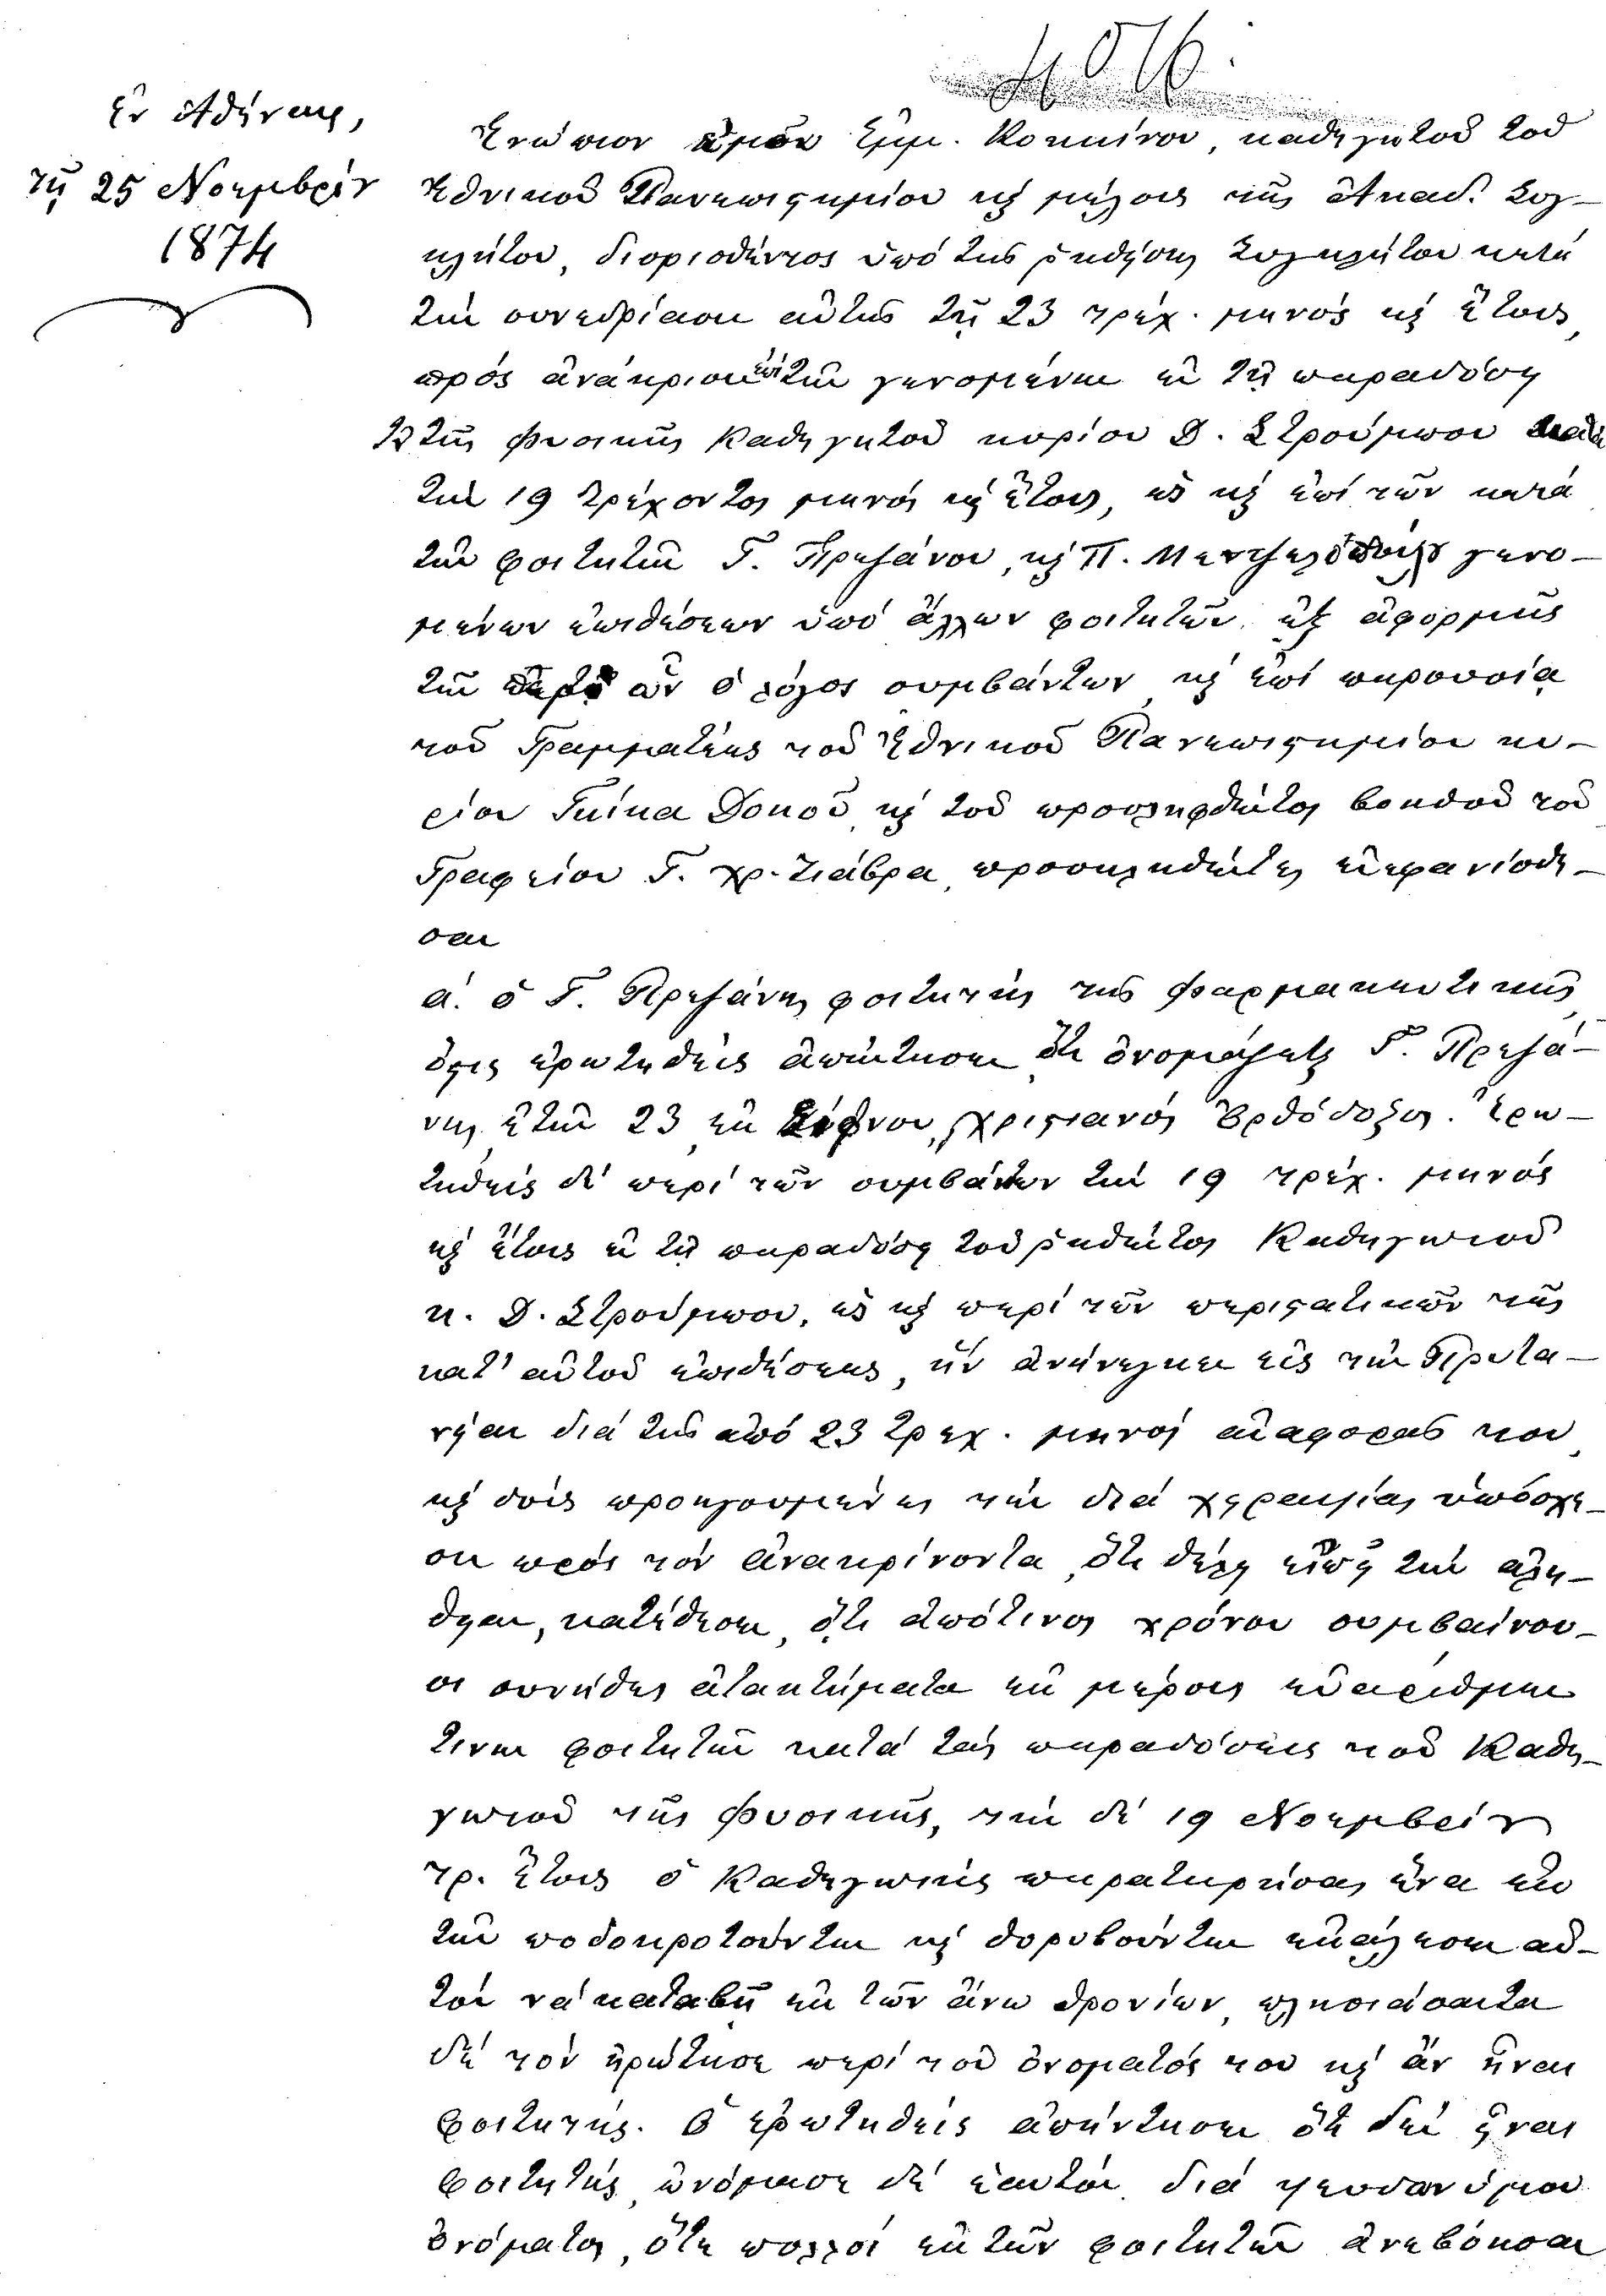 Ἐν Ἀθήναις,
τῇ 25 Νοεμβρίου
1874
Ἐνώπιον ἐμοῦ Ἐμμ. Κοκκίνου, καθηγητοῦ τοῦ
Ἐθνικοῦ Πανεπιστημίου καὶ μέλους τῆς Ἀκαδ. Συγ-
κλήτου, διορισθέντος ὑπὸ τῆς ῥηθείσης Συγκλήτου κατὰ
τὴν συνεδρίασιν αὐτῆς τῇ 23 τρέχ. μηνὸς καὶ ἔτους,
πρὸς ἀνάκρισιν ἐπὶ τῶν γενομένων ἐν τῇ παραδόσει
τῆς Φυσικῆς Καθηγητοῦ κυρίου Δ. Στρούμπου κατὰ
τὴν 19 τρέχοντος μηνὸς καὶ ἔτους, ὡς καὶ ἐπὶ τῶν κατὰ
τῶν φοιτητῶν Γ. Πρεζάνου, καὶ Π. γενο-
μένων ἐπιθέσεων ὑπὸ ἄλλων φοιτητῶν, ἐξ ἀφορμῆς
τῶν περὶ ὧν ὁ λόγος συμβάντων, καὶ ἐπὶ παρουσίᾳ
τοῦ Γραμματέως τοῦ Ἐθνικοῦ Πανεπιστημίου κυ-
ρίου Γκίκα Δοκοῦ, καὶ τοῦ προσληφθέντος βοηθοῦ τοῦ
Γραφείου Γ. Χρ. προσκληθέντες ἐνεφανίσθη-
σαν
α. ὁ Γ. Πρεζάνης φοιτητὴς τῆς Φαρμακευτικῆς,
ὅστις ἐρωτηθεὶς ἀπήντησεν ὅτι ὀνομάζεται Γ. Πρεζά-
νης, ἐτῶν 23, ἐκ Σίφνου, χριστιανὸς Ὀρθόδοξος. Ἐρω-
τηθεὶς δὲ περὶ τῶν συμβάντων τὴν 19 τρέχ. μηνὸς
καὶ ἔτους ἐν τῇ παραδόσει τοῦ ῥηθέντος Καθηγητοῦ
κ. Δ. Στρούμπου, ὡς καὶ περὶ τῶν περιστατικῶν τῆς
κατ' αὐτοῦ ἐπιθέσεως, ἣν ἀνήνεγκεν εἰς τὴν Πρυτα-
νείαν διὰ τῆς ἀπὸ 23 τρέχ. μηνὸς ἀναφορᾶς του,
καὶ δοὺς προηγουμένως τὴν διὰ χειραψίας ὑπόσχε-
σιν πρὸς τὸν ἀνακρίνοντα, ὅτι θέλει εἴπῃ τὴν ἀλή-
θειαν, κατέθεσεν, ὅτι ἀπό τινος χρόνου συμβαίνου-
σι συνήθως ἀτακτήματα ἐκ μέρους εὐαρίθμων
τινων φοιτητῶν κατὰ τὰς παραδόσεις τοῦ Καθη-
γητοῦ τῆς Φυσικῆς, τὴν δὲ 19 Νοεμβρίου
τρ. ἔτους ὁ Καθηγητὴς παρατηρήσας ἕνα ἐκ
τῶν ποδοκροτούντων καὶ θορυβούντων ἐκάλεσεν αὐ-
τὸν νὰ καταβῇ ἐκ τῶν ἄνω θρονίων, πλησιάσαντα
δὲ τὸν ἠρώτησε περὶ τοῦ ὀνόματός του καὶ ἂν ἦναι
φοιτητής. Ὁ ἐρωτηθεὶς ἀπήντησεν ὅτι δὲν ἦναι
φοιτητής, ὠνόμασε δὲ ἑαυτὸν διὰ ψευδωνύμου
ὀνόματος, ὅτε πολλοὶ ἐκ τῶν φοιτητῶν ἀνεβόησαν